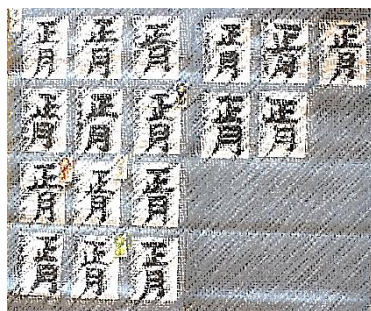 正月 正月 正月 正月 正月 正月
正月 正月 正月 正月 正月
正月 正月 正月
正月 正月 正月